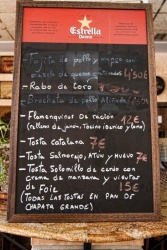 Estrella
Damm
- Rabo de toro
- Flamenquines DE RACIÓN 12€
(relleno de jamón, tocino ibérico y lomo)
- Tosta catalana 7€
- Tosta Salmorejo, ATÚN y HUEVO 7€
- Tosta Solomillo de cerdo con
crema de manzana y virutas
de Foie 15€
(TODAS LAS TOSTAS EN PAN DE
CHAPATA GRANDE)